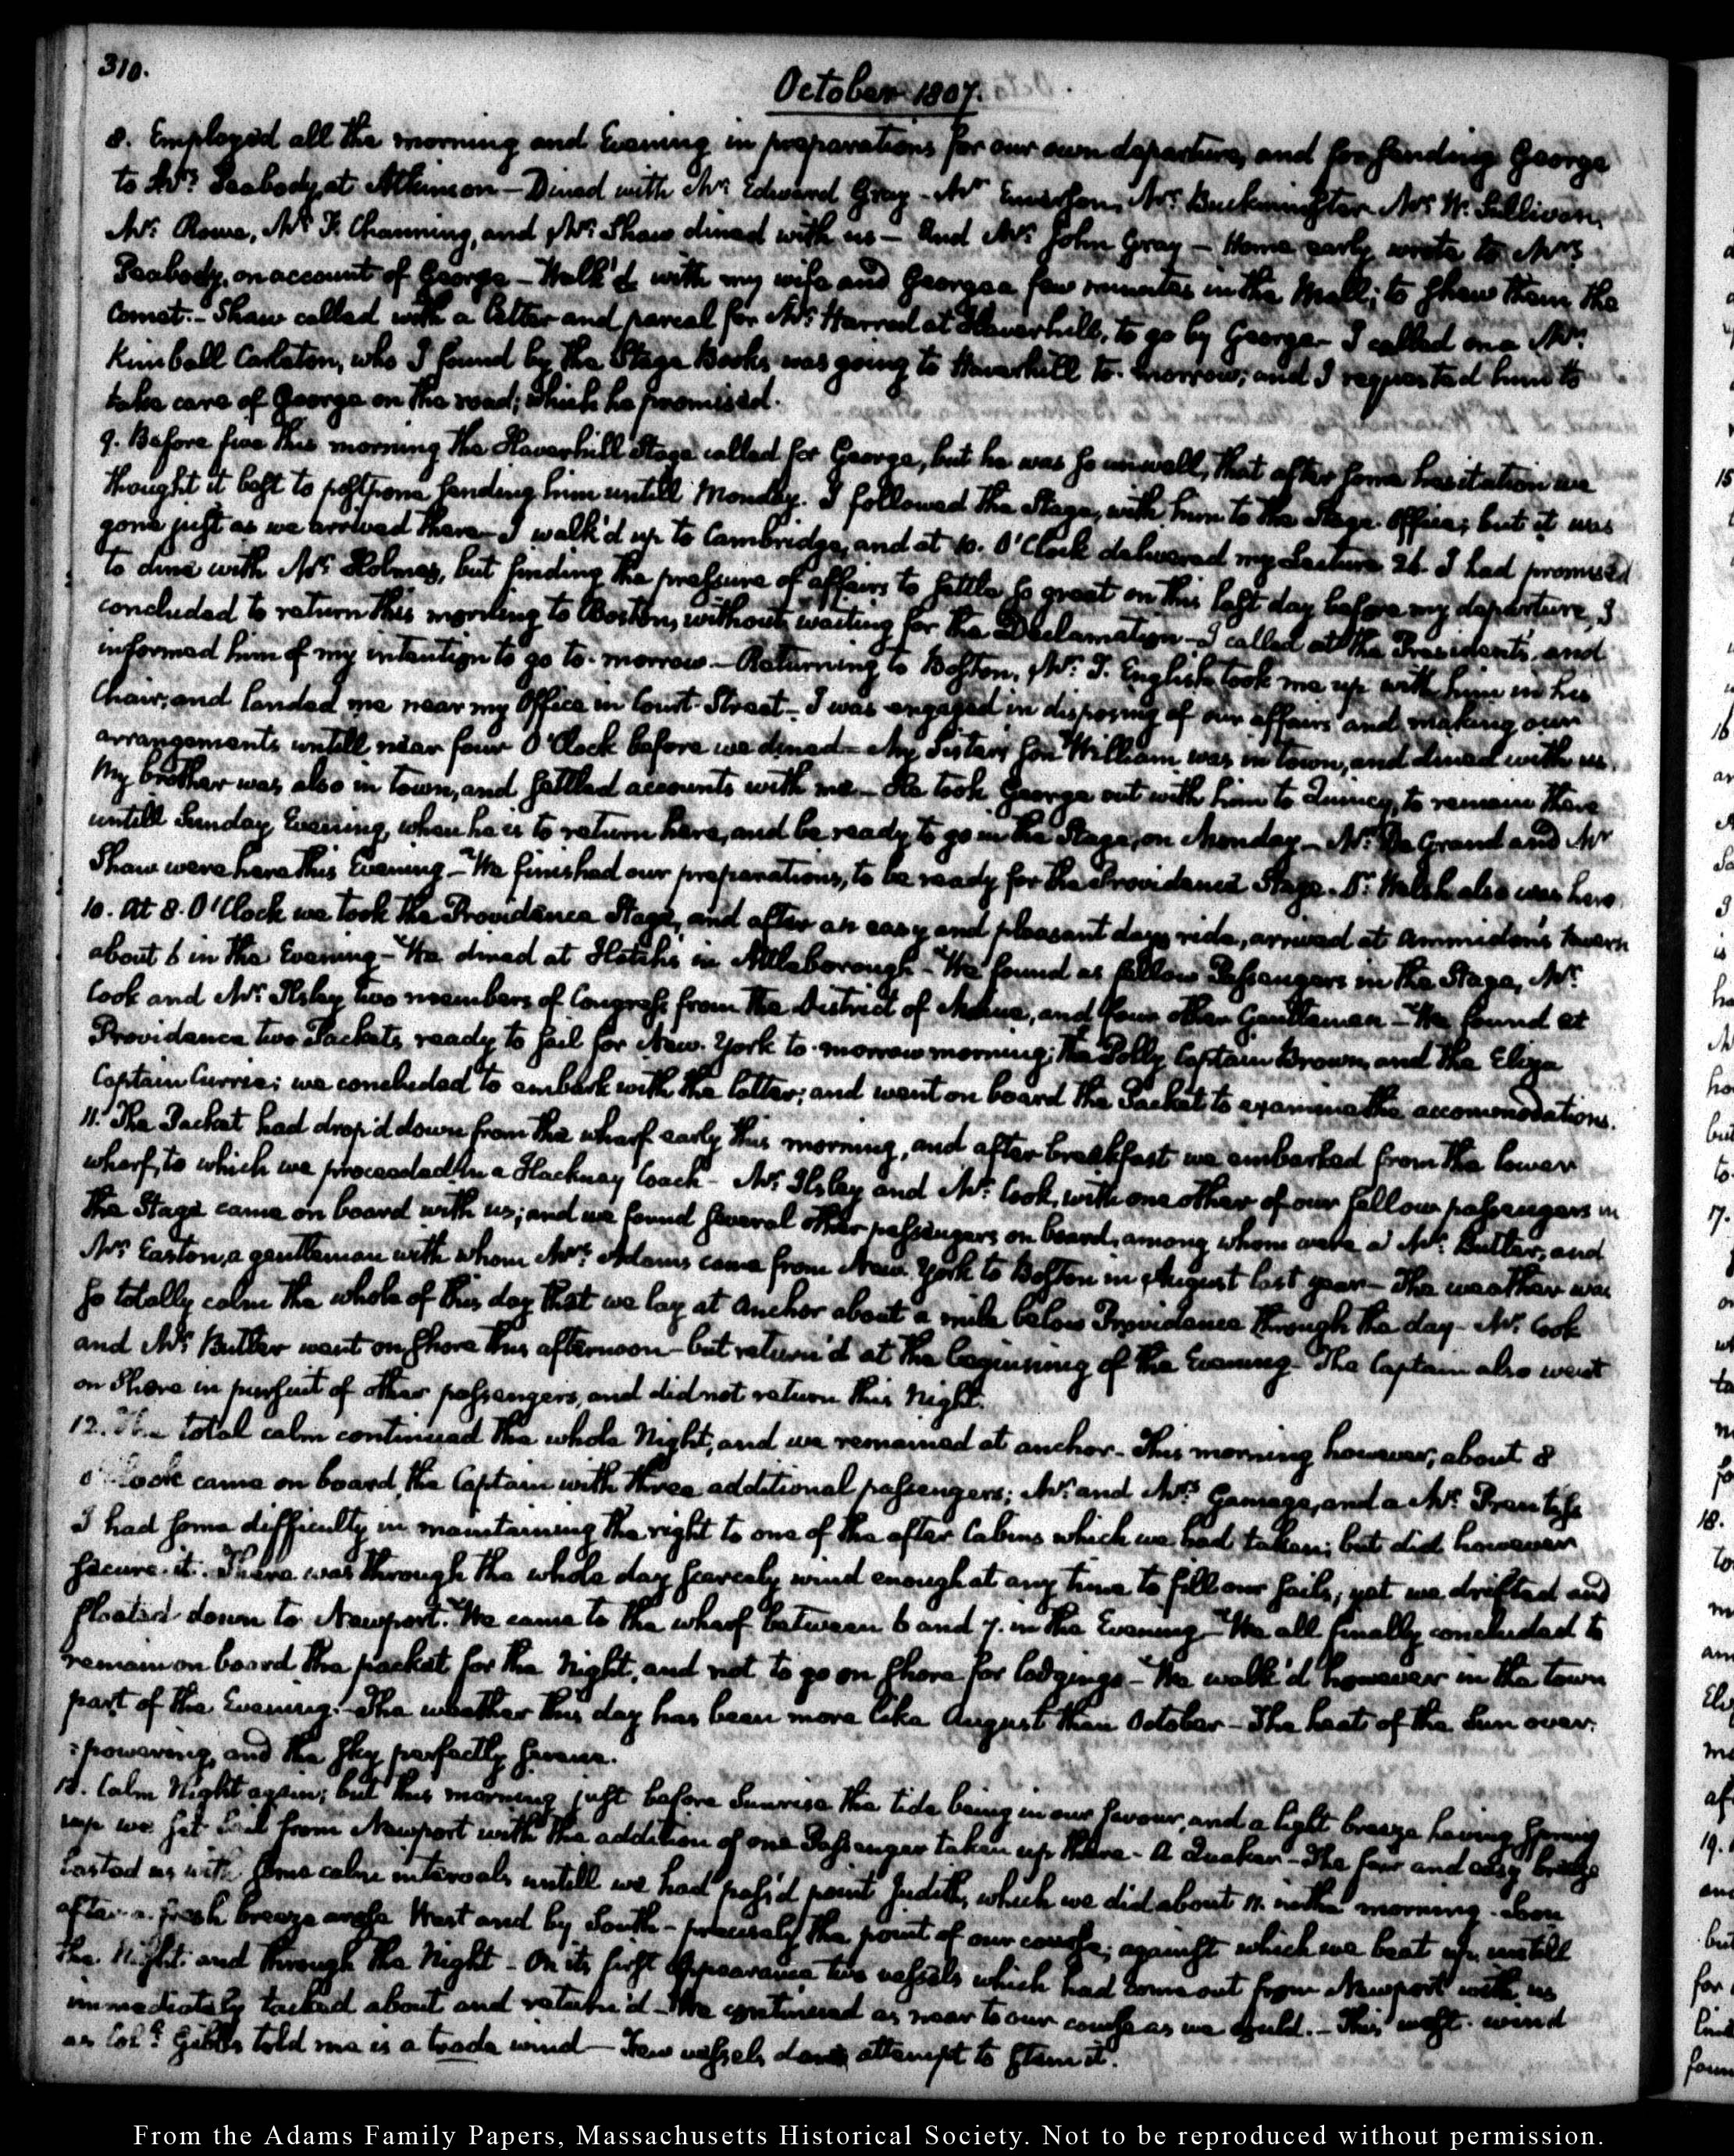 310.
October 1807.
8. Employ'd all the morning and Evening in preparations for our own departure, and for sending George
to Mrs. Peabody, at Atkinson — Dined with Mr. Edward Gray — Mr. Emerson, Mr. Buckminster Mr. W. Sullivan,
Mr. Rowe, Mr. F. Channing, and Mr. Shaw dined with us — And Mr. John Gray — Home early, wrote to Mrs.
Peabody, on account of George — Walk'd with my wife and George a few minutes in the Mall; to shew them the
Comet. — Shaw called with a letter and parcel for Mr. Harrod at Haverhill, to go by George — I called on a Mr.
Kimball Carleton, who I found by the Stage Books was going to Haverhill to-morrow; and I requested him to
take care of George on the road; which he promised.
9. Before five this morning the Haverhill Stage called for George, but he was so unwell, that after some hesitation we
thought it best to postpone sending him untill Monday. I followed the Stage, with him to the Stage-Office; but it was
gone just as we arrived there — I walk'd up to Cambridge, and at 10. O'Clock delivered my Lecture 26. I had promised
to dine with Mr. Holmes, but finding the pressure of affairs to settle so great on this last day before my departure, I
concluded to return this morning to Boston, without waiting for the Declamation — I called at the President's, and
informed him of my intention to go to-morrow. — Returning to Boston, Mr. T. English took me up with him in his
Chair, and landed me near my Office in Court-Street — I was engaged in disposing of our affairs and making our
arrangements untill near four O'Clock before we dined — My Sister's son William was in town, and dined with us.
My brother was also in town, and settled accounts with me — He took George out with him to Quincy, to remain there
untill Sunday Evening, when he is to return here, and be ready to go in the Stage, on Monday — Mr. De Grand and Mr.
Shaw were here this Evening — We finished our preparations, to be ready for the Providence Stage. Dr. Welsh also was here.
10. At 8. O'Clock we took the Providence Stage, and after an easy and pleasant days ride, arrived at Ammidon's tavern
about 6 in the Evening — We dined at Hatch's in Attleborough — We found as fellow Passengers in the Stage, Mr.
Cook and Mr. Ilsley two members of Congress from the District of Maine, and four other Gentlemen — We found at
Providence two Packets, ready to sail for New-York to-morrow morning; the Polly, Captain Brown, and the Eliza
Captain Currie; we concluded to embark with the latter; and went on board the Packet to examine the accommodations.
11. The Packet had drop'd down from the wharf early this morning, and after breakfast we embarked from the lower
wharf, to which we proceeded in a Hackney Coach — Mr. Ilsley and Mr. Cook, with one other of our fellow passengers in
the Stage came on board with us; and we found several other passengers on board, among whom were a Mr. Butler, and
Mr. Easton, a gentleman with whom Mrs. Adams came from New-York to Boston in August last year — The weather was
so totally calm the whole of this day that we lay at anchor about a mile below Providence through the day — Mr. Cook
and Mr. Butler went on shore this afternoon — but return'd at the beginning of the Evening — The Captain also went
on Shore in pursuit of other passengers, and did not return this Night.
12. The total calm continued the whole Night, and we remained at anchor — This morning however, about 8
O'Clock came on board, the Captain with three additional passengers; Mr. and Mrs. Gamage, and a Mr. Prentiss
I had some difficulty in maintaining the right to one of the after Cabins which we had taken; but did however
secure it. There was through the whole day scarcely wind enough at any time to fill our sails; yet we drifted and
floated down to Newport. We came to the wharf between 6 and 7. in the Evening — We all finally concluded to
remain on board the packet for the Night, and not to go on shore for lodgings — We walk'd however in the town
part of the Evening. — The weather this day has been more like August than October — The heat of the Sun over-
:powering, and the sky perfectly serene.
13. Calm Night again; but this morning just before Sunrise the tide being in our favour, and a light breeze having sprung
up we set sail from Newport with the addition of one Passenger taken up there — A Quaker — The fair and easy breeze
lasted us with some calm intervals untill we had pass'd point Judith, which we did about 11. in the morning — Soon
after a fresh breeze arose West and by South — precisely the point of our course; against which we beat up untill
the Night and through the Night — On its first appearance two vessels which had come out from Newport with us
immediately tacked about and return'd — We continued as near to our course as we could. — This west wind
as Coll. Gibbs told me is a trade wind — Few vessels attempt to stem it.
From the Adams Family Papers, Massachusetts Historical Society. Not to be reproduced without permission.